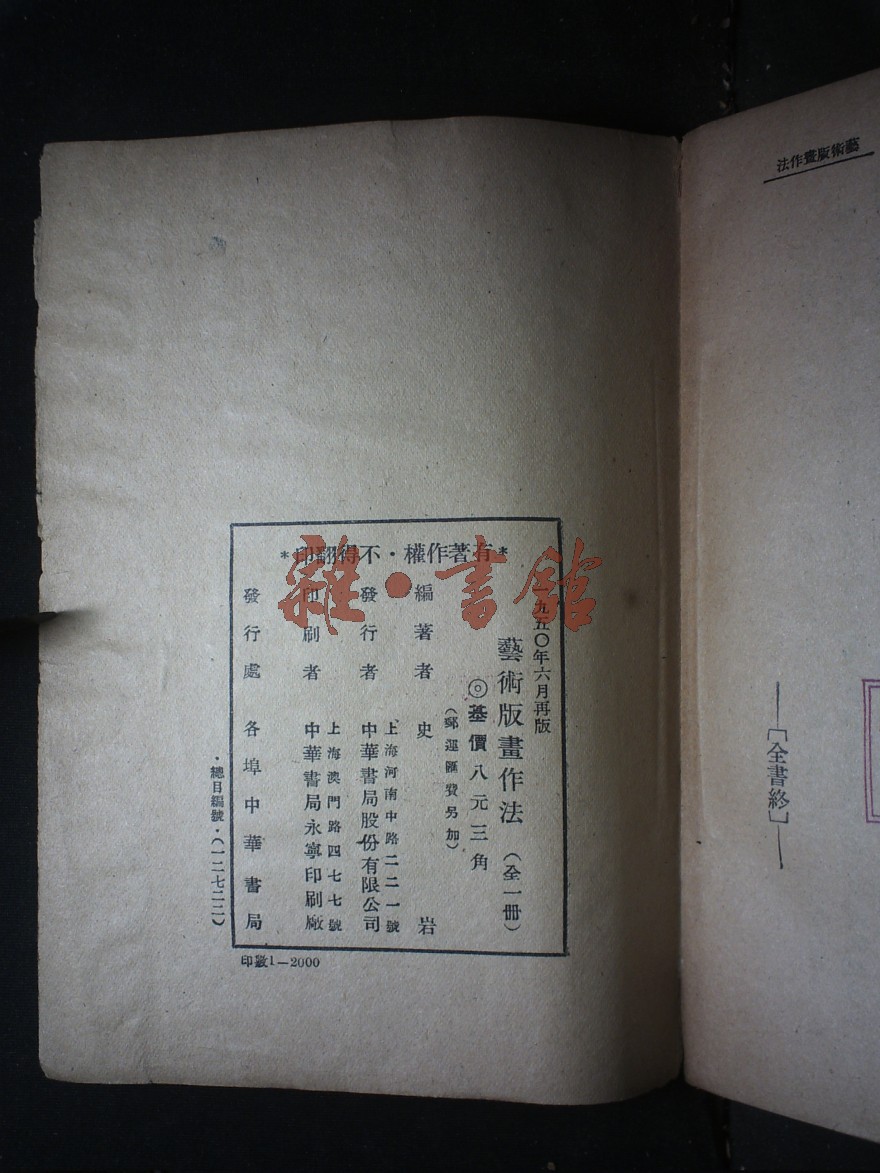 藝術版畫作法
［全書終］
*有著作權・不得翻印*
一九五〇年六月再版
藝術版畫作法（全一冊）
◎基價八元三角
（郵運匯費另加）
編著者 史岩
發行者 中華書局股份有限公司
上海河南中路二二一號
印刷者 中華書局永寧印刷廠
上海澳門路四七七號
發行處 各埠中華書局
・總目編號・（一二七二二）
印數1—2000
雜・書館